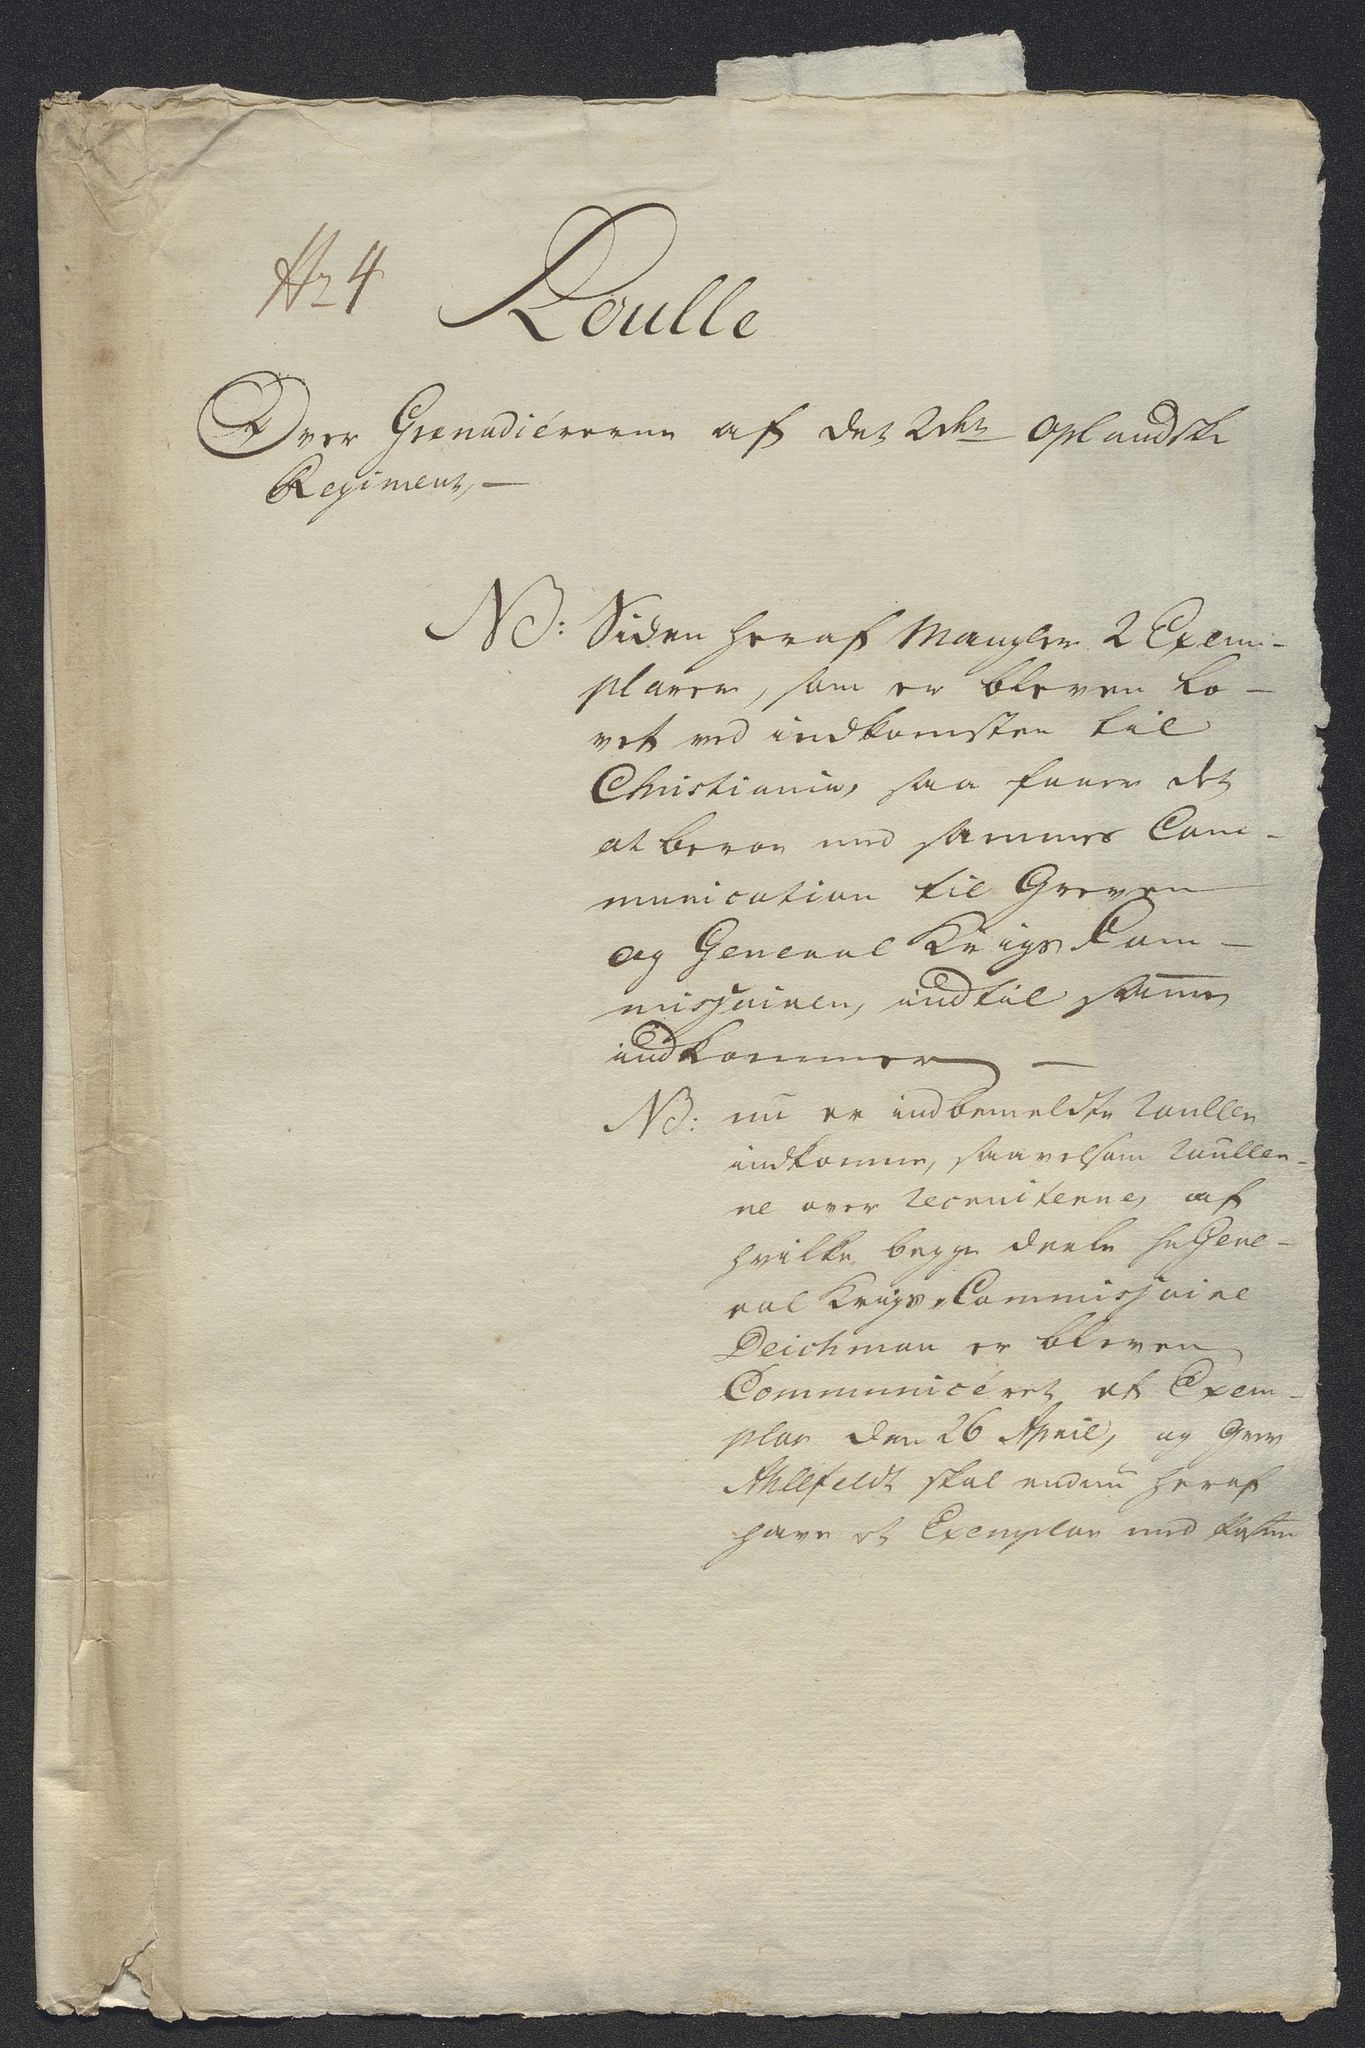 No 4
Roulle
Over Grenadiérerne af det 2det Oplandske
Regiment, —
NB: Siden heraf Mangler 2 Exem-
plarer, som er bleven lo-
vet ved indkomsten til
Christiania, saa faaer det
at beroe med sammes Com-
munication til Greven
og General Krigs Com-
missairen, indtil samme
indkommer —
NB: nu er indbemeldte Roulle
indkomne, saavelsom Roullen-
ne over Recruiterne, af
hvilke begge deele hr Gene-
ral Krigs-Commissaire
Deichman er bleven
Communicéret et Exem-
plar den 26 April, og Grev
Ahlefeldt skal endnu heraf
have et Exemplar med